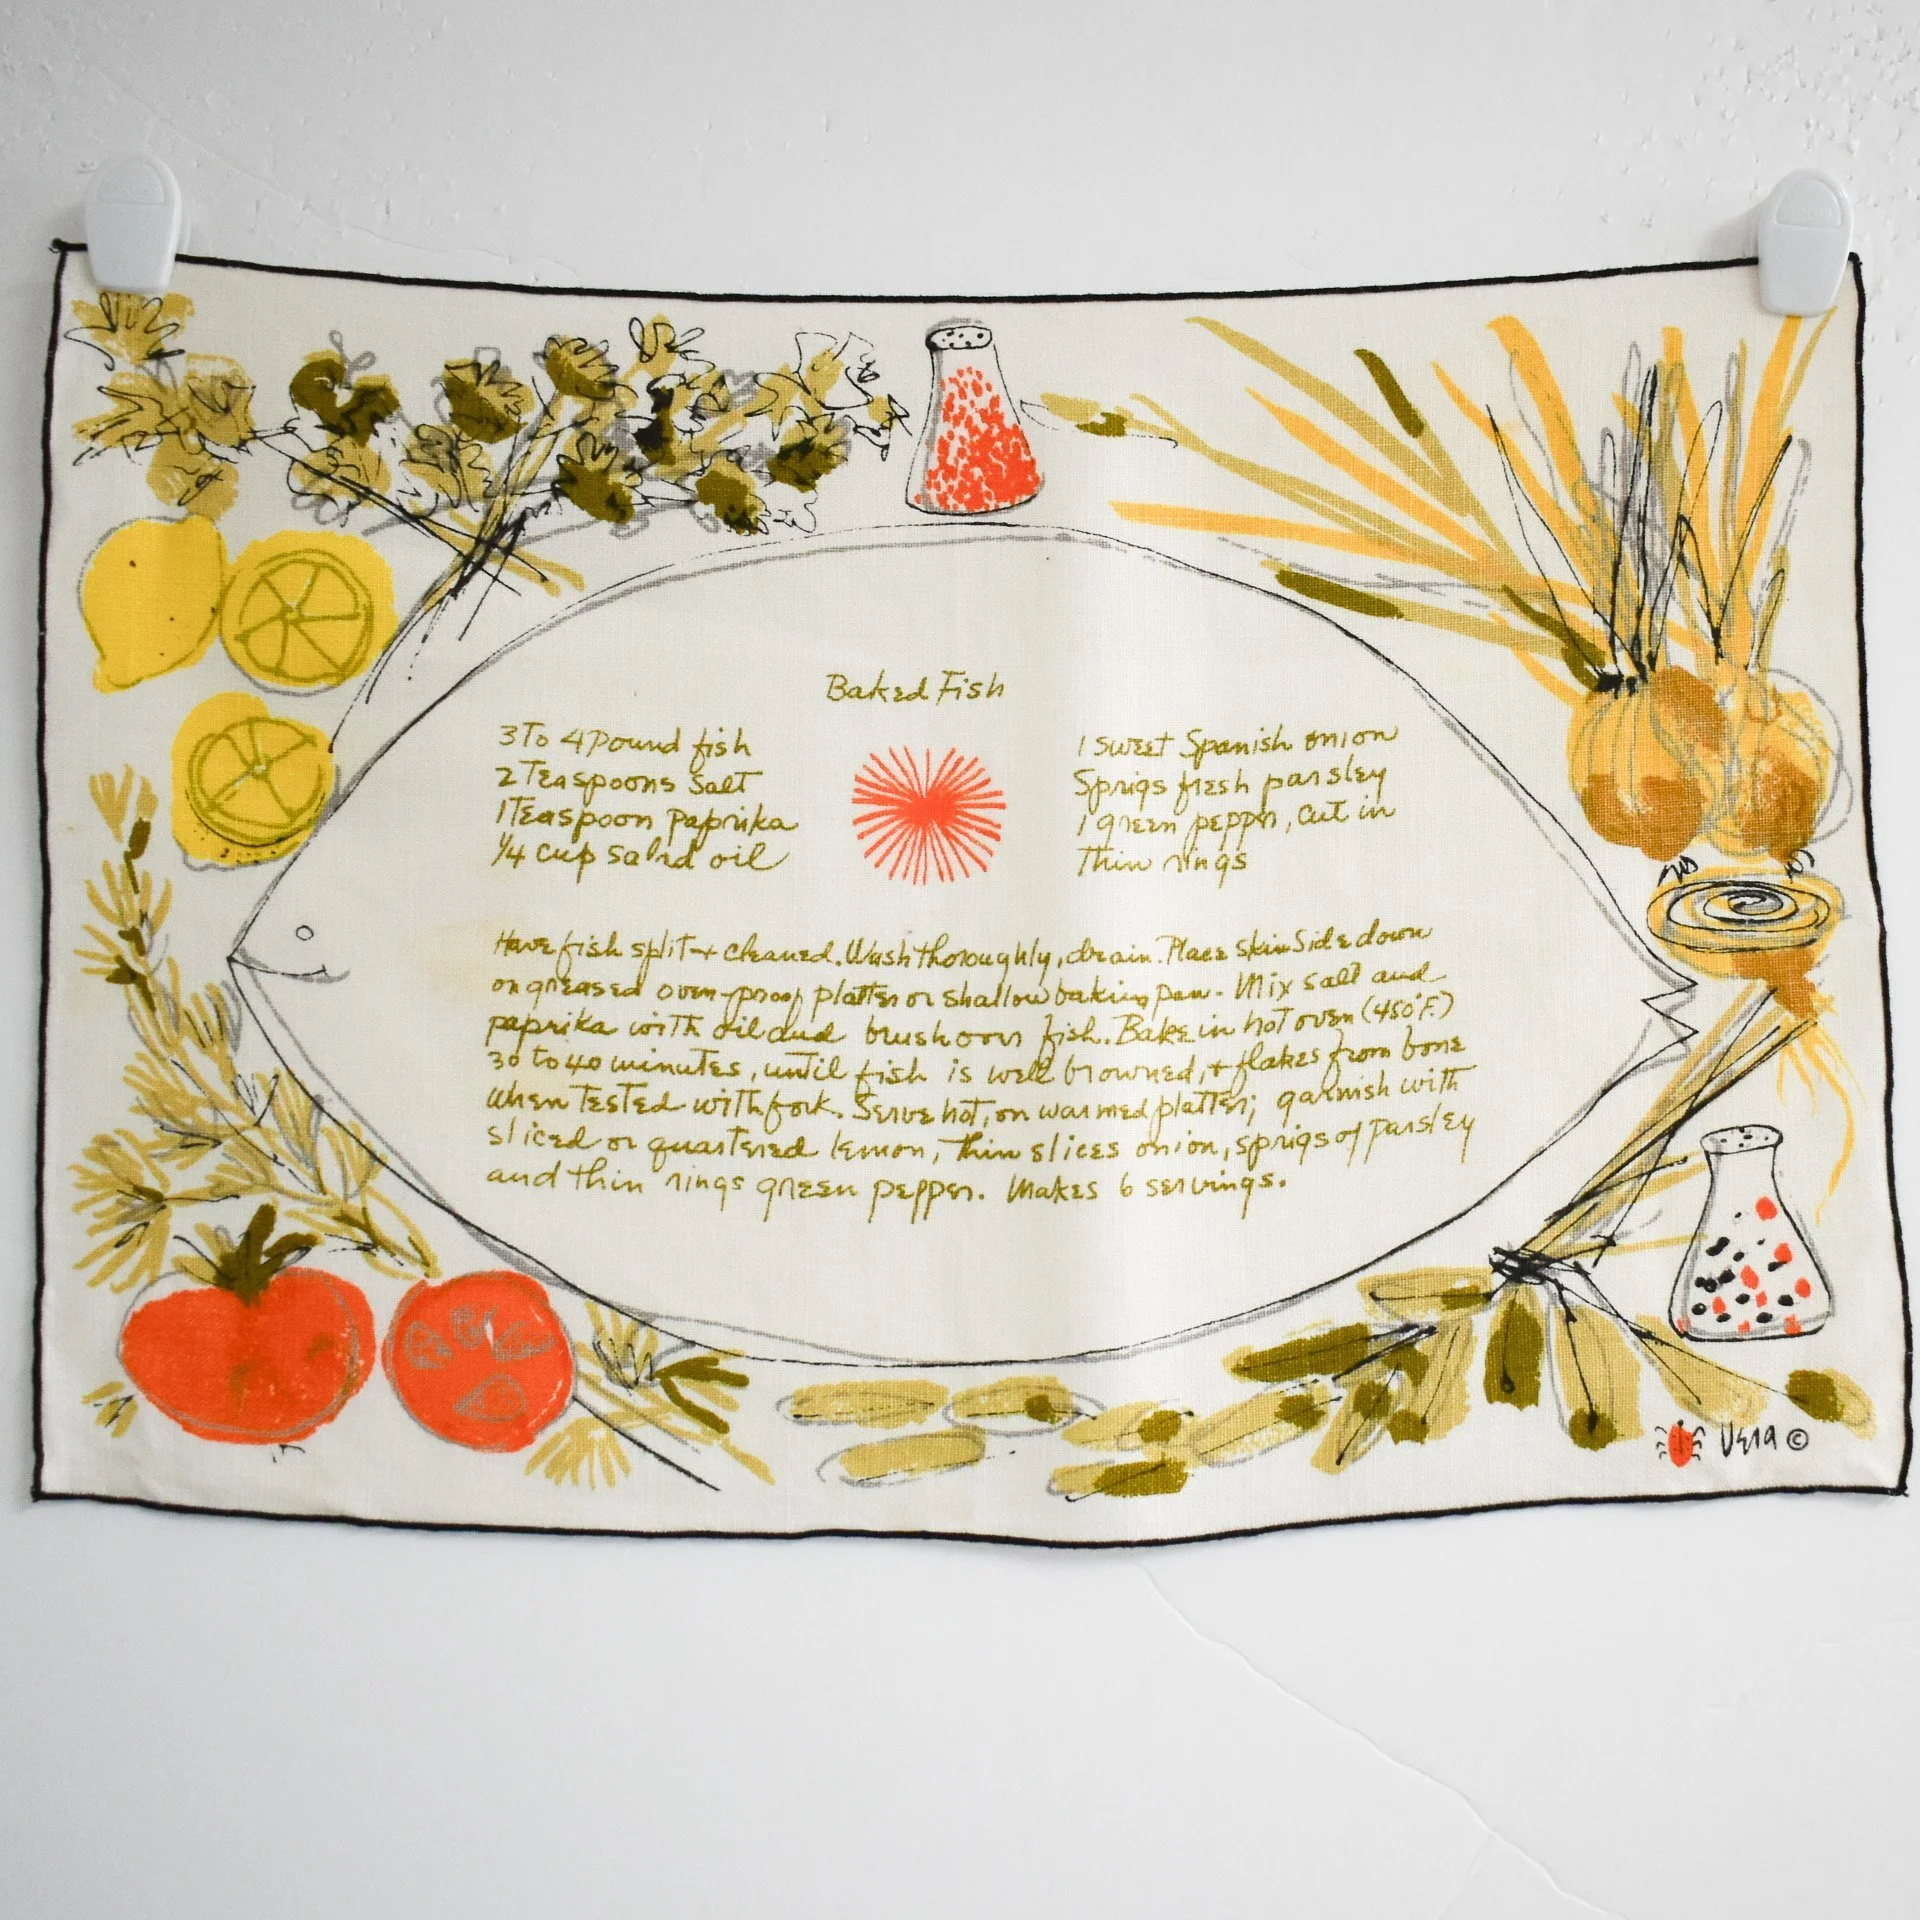 Baked Fish
3 To 4 Pound fish
2 Teaspoons Salt
1 Teaspoon Paprika
1/4 cup Salad oil
1 sweet Spanish onion
Sprigs fresh parsley
1 green pepper, cut in
Thin rings
Have fish split + cleaned. Wash thoroughly, drain. Place skin Side down
on greased oven-proof platter or shallow baking pan. Mix salt and
paprika with oil and brush over fish. Bake in hot oven (450°F.)
30 to 40 minutes, until fish is well browned, + flakes from bone
when Tested with fork. Serve hot, on warmed platter; garnish with
sliced or quartered lemon, Thin slices onion, sprigs of parsley
and thin rings green pepper. Makes 6 servings.
Vera ©